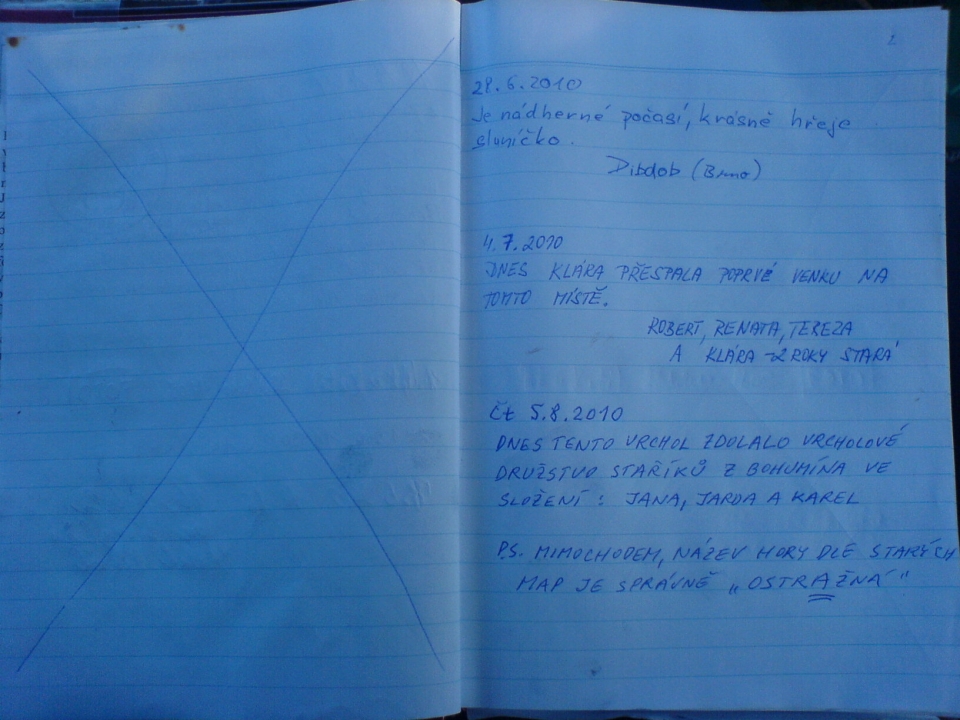 2
29.6.2010
Je nádherné počasí, krásně hřeje
sluníčko.
Dibdob (Brno)
4.7.2010
DNES KLÁRA PŘESPALA POPRVÉ VENKU NA
TOMTO MÍSTĚ.
ROBERT, RENATA, TEREZA
A KLÁRA - 2 ROKY STARÁ
Čt 5.8.2010
DNES TENTO VRCHOL ZDOLALO VRCHOLOVÉ
DRUŽSTVO STAŘÍKŮ Z BOHUMÍNA VE
SLOŽENÍ: JANA, JARDA A KAREL
P.S. MIMOCHODEM, NÁZEV HORY DLE STARÝCH
MAP JE SPRÁVNĚ „OSTRAŽNÁ"